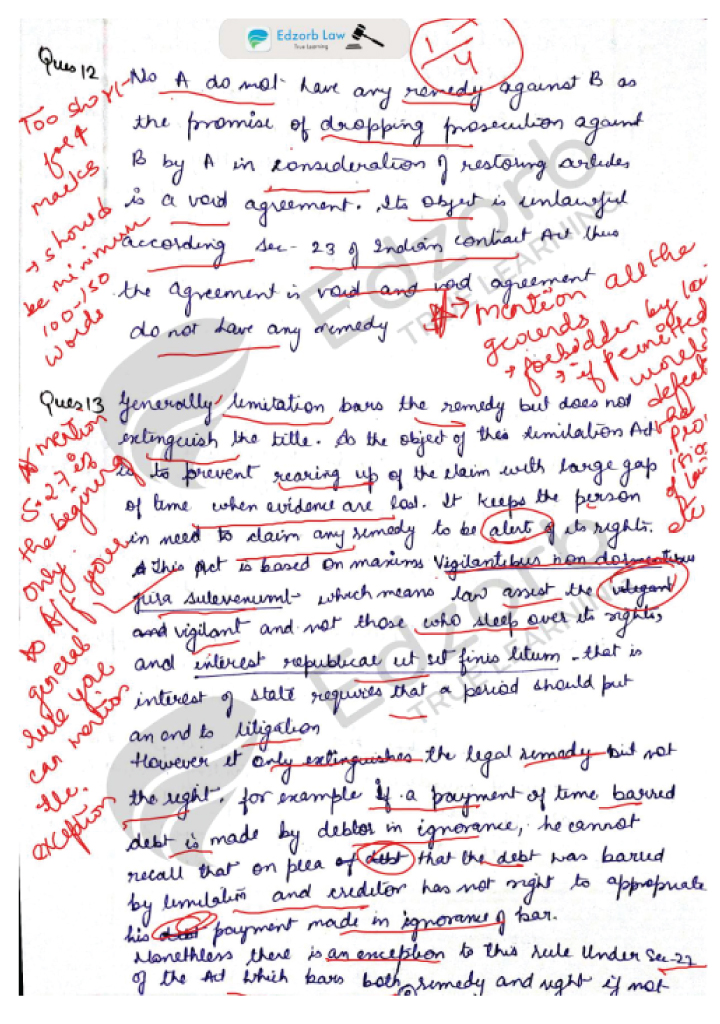 Edzorb Law
True Learning
1/4
Ques 12
No A do not have any remedy against B as
the promise of dropping prosecution against
B by A in consideration of restoring articles
is a void agreement. Its object is unlawful
according sec- 23 of Indian contract Act thus
the agreement is void and void agreement
do not have any remedy
Too short
for 4
marks
→ should
be minimum
100-150
words
→ mention all the
grounds
→ forbidden by law
→ if permitted
would
defeat
provision
of law
etc
Ques 13 Generally limitation bars the remedy but does not
extinguish the title. As the object of this limilation Act
is to prevent rearing up of the claim with large gap
of time when evidence are lost. It keeps the person
in need to claim any remedy to be alert of its rights.
This Act is based on maxims Vigilantibus non dormentibus
jura subveniunt which means law assist the vilegant
and vigilant and not those who sleep over its rights,
and interest republicae ut sit finis litium - that is
interest of state requires that a period should put
an end to litigation
However it only extinguishes the legal remedy but not
the right. for example if a payment of time barred
debt is made by debtor in ignorance, he cannot
recall that on plea of debt that the debt was barred
by limulation and creditor has not right to appropriate
his debt payment made in ignorance of bar.
Nonethless there is an exception to this rule Under Sec-27
of the Act which bars both remedy and right if not
mention
S.27 is
the beginning
only.
As A/f your
general
rule you
can mention
the
exception
Edzorb
TRUE LEARNING
Edzorb
TRUE LEARNING